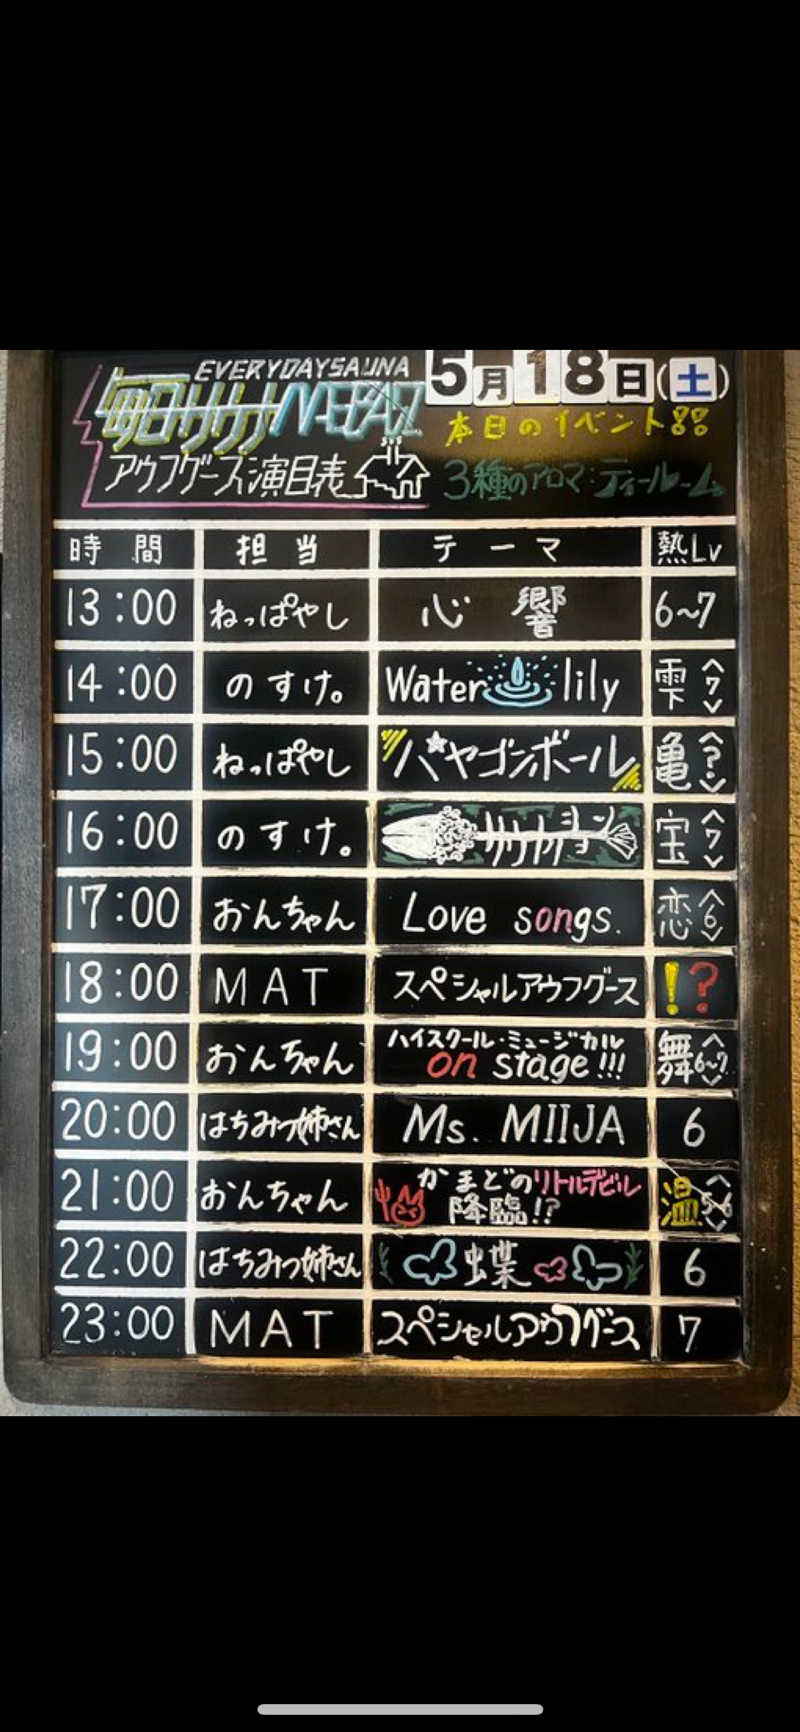 EVERYDAYSAUNA
5月18日(土)
毎日サウナMAEBASHI
本日のイベント!!
アウフグース演目表
3種のアロマ:ティールーム
時間 担当 テーマ 熱Lv
13:00 ねっぱやし 心響 6〜7
14:00 のすけ。 Water lily 雫<7>
15:00 ねっぱやし パヤゴンボール 亀<?>
16:00 のすけ。 宝<7>
17:00 おんちゃん Love songs. 恋<6>
18:00 MAT スペシャルアウフグース !?
19:00 おんちゃん ハイスクール・ミュージカル
on stage!!! 舞<6〜7>
20:00 はちみつ姉さん Ms. MIIJA 6
21:00 おんちゃん かまどのリトルデビル
降臨!? 温<5〜6>
22:00 はちみつ姉さん 蝶 6
23:00 MAT スペシャルアウフグース 7